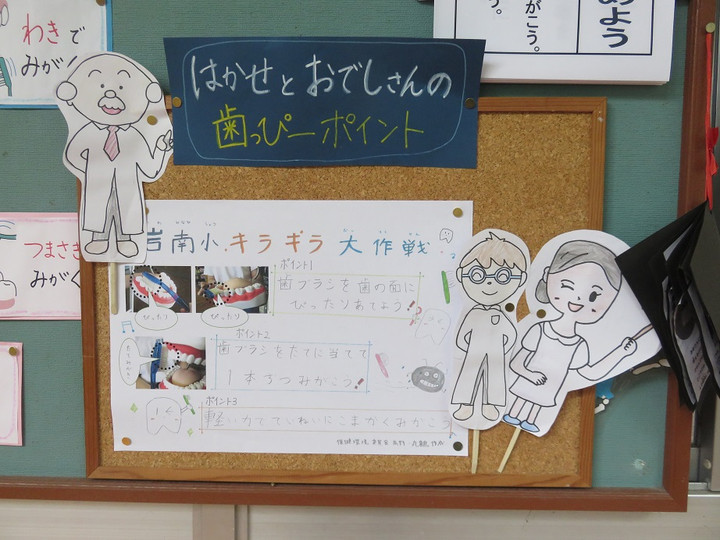 わきで
みがく
めよう
がこう。
う。
はかせとおでしさんの
歯っぴーポイント
つまさき
みがく
岩南小 キラキラ大作戦
ポイント1
歯ブラシを歯の面に
ぴったりあてよう!
ぴったり
ぴったり
ポイント2
歯ブラシをたてに当てて
1本ずつみがこう!
ポイント3
軽い力でていねいにこまかくみがこう